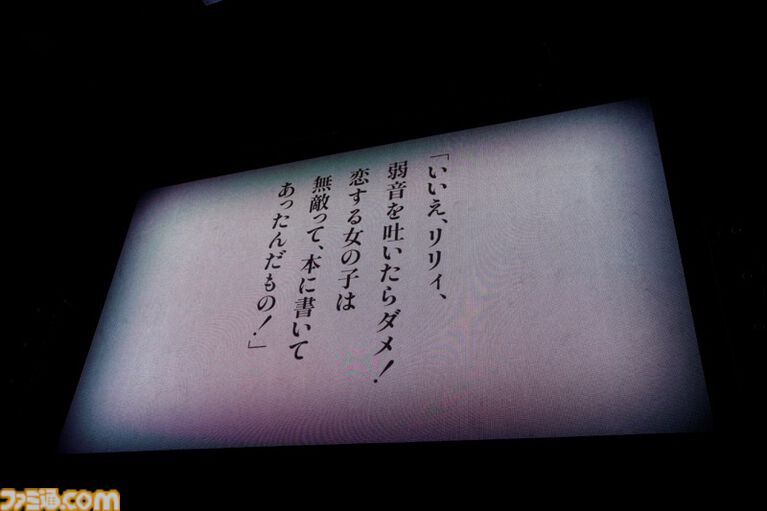 「いいえ、リリィ、
弱音を吐いたらダメ！
恋する女の子は
無敵って、本に書いて
あったんだもの！」
ファミ通.com